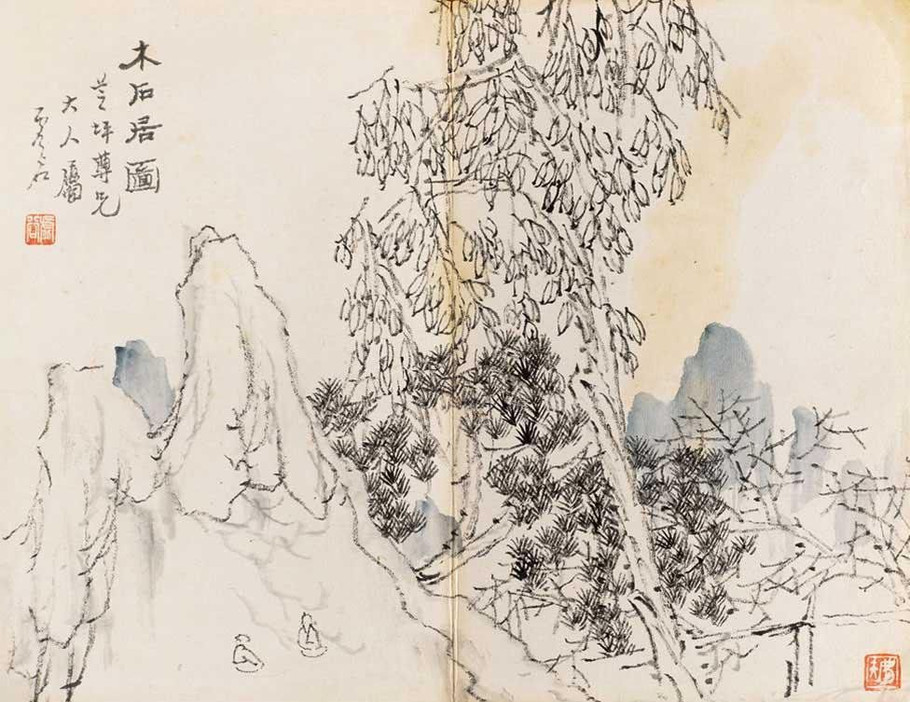 木石居圖
芝坪尊兄
大人屬
石